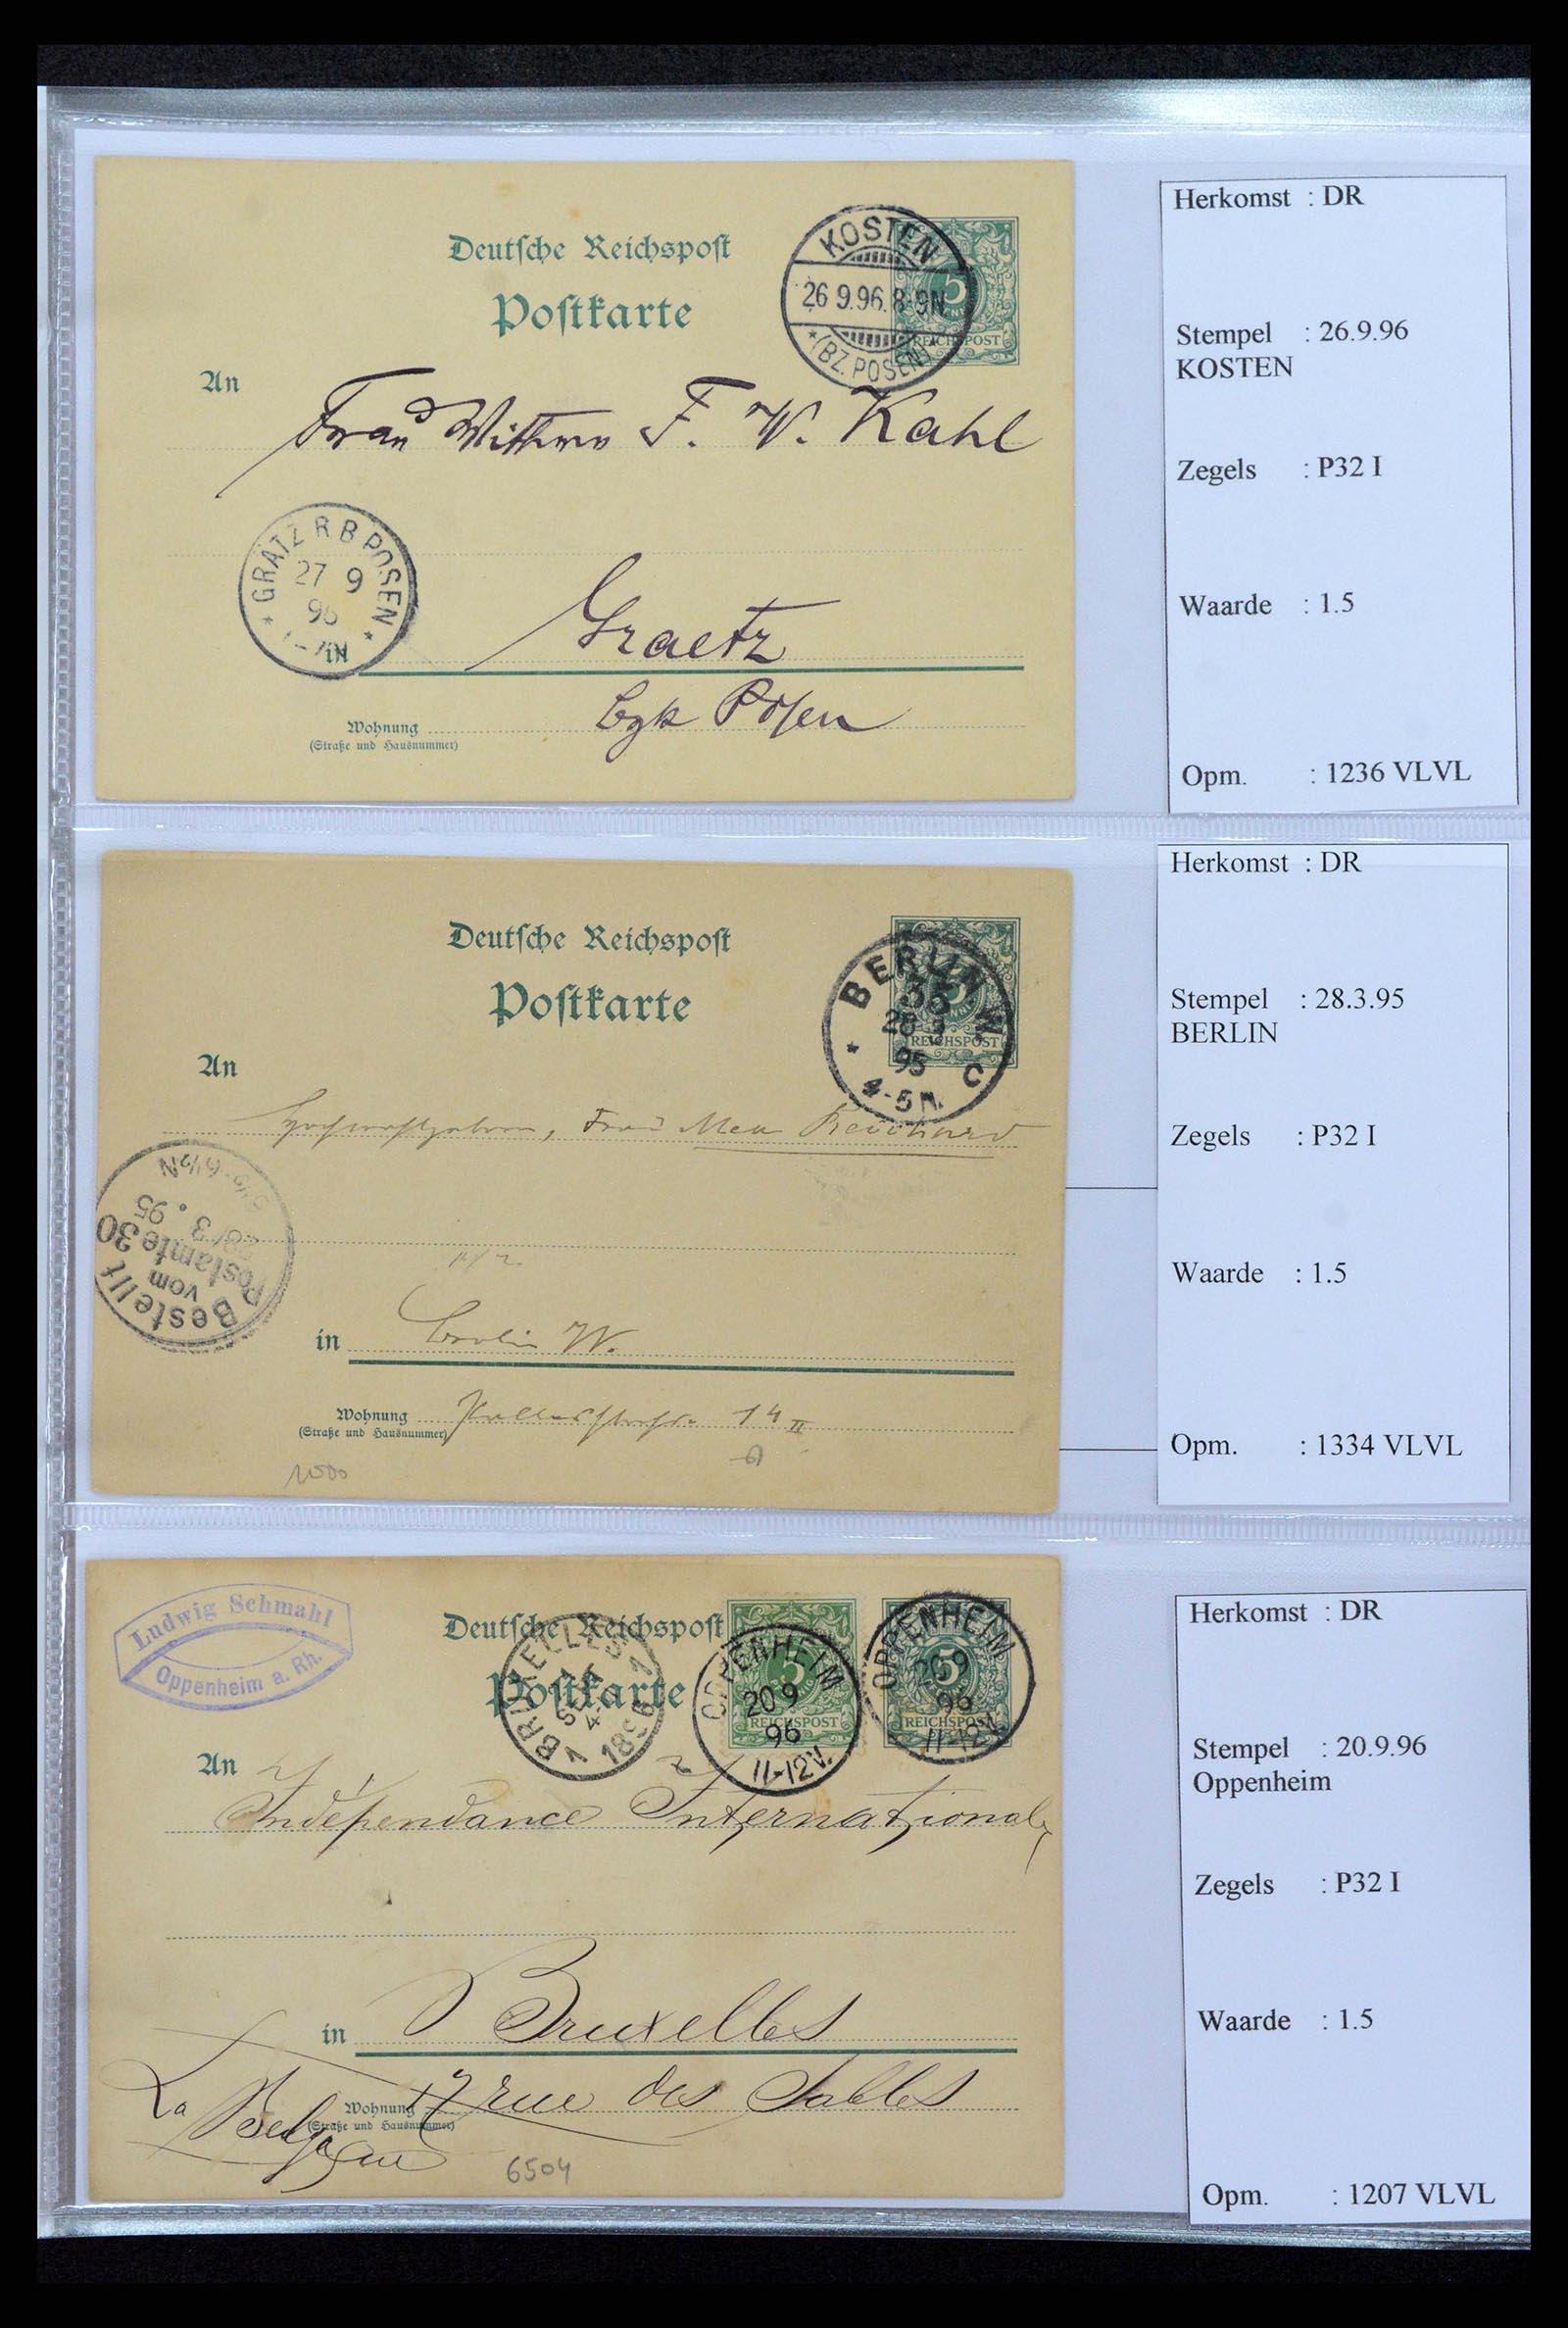 Deutſche Reichspoſt
Poſtkarte
KOSTEN
26.9.96. 8-9N
(BZ. POSEN)
5
REICHSPOST
An
Frau Wittwe F. W. Kahl
GRÄTZ R B POSEN
27 9
96
in Graetz
Wohnung
(Straße und Hausnummer)
Bzk Posen
Herkomst : DR
Stempel : 26.9.96
KOSTEN
Zegels : P32 I
Waarde : 1.5
Opm. : 1236 VLVL
Deutſche Reichspoſt
Poſtkarte
BERLIN W
35
28 3
95
4-5N.
C
REICHSPOST
An
Frau
Bestellt
vom
Postamte 30
28/3. 95
6½N
in Berlin W.
Wohnung 14 II
(Straße und Hausnummer)
1500
Herkomst : DR
Stempel : 28.3.95
BERLIN
Zegels : P32 I
Waarde : 1.5
Opm. : 1334 VLVL
Ludwig Schmahl
Oppenheim a. Rh.
Deutſche Reichspoſt
Poſtkarte
BRUXELLES
1896
OPPENHEIM
20 9
96
11-12V.
5
REICHSPOST
OPPENHEIM
20 9
96
11-12V.
5
REICHSPOST
An
Indépendance International
in Bruxelles
Wohnung 17 rue des Sables
(Straße und Hausnummer)
La Belgique
6504
Herkomst : DR
Stempel : 20.9.96
Oppenheim
Zegels : P32 I
Waarde : 1.5
Opm. : 1207 VLVL